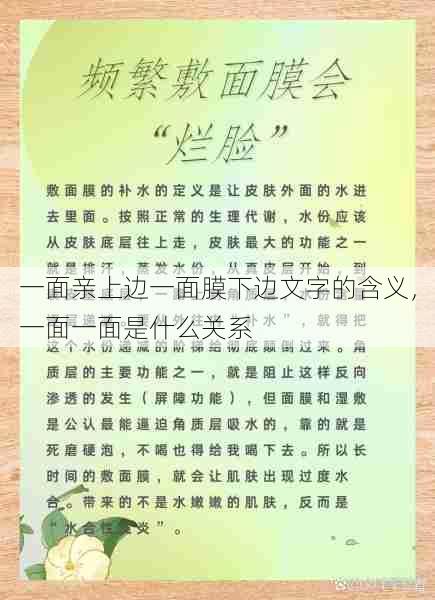 频繁敷面膜会
“烂脸”
敷面膜的补水的定义是让皮肤外面的水进
去里面。按照正常的生理代谢，水份应该
从皮肤底层往上走，皮肤最大的功能之一
就是排汗，蒸发水份，从真皮层开始，到
一面亲上边一面膜下边文字的含义，
一面一面是什么关系
这个水份递减的阶梯给彻底颠倒过来。角
质层的主要功能之一，就是阻止这样反向
渗透的发生（屏障功能），但面膜和湿敷
是公认最能逼迫角质层吸水的，靠的就是
死磨硬泡，不喝也得给我喝下去。所以长
时间的敷面膜，就会让肌肤出现过度水
合。带来的不是水嫩嫩的肌肤，反而是
“水合性皮炎”。